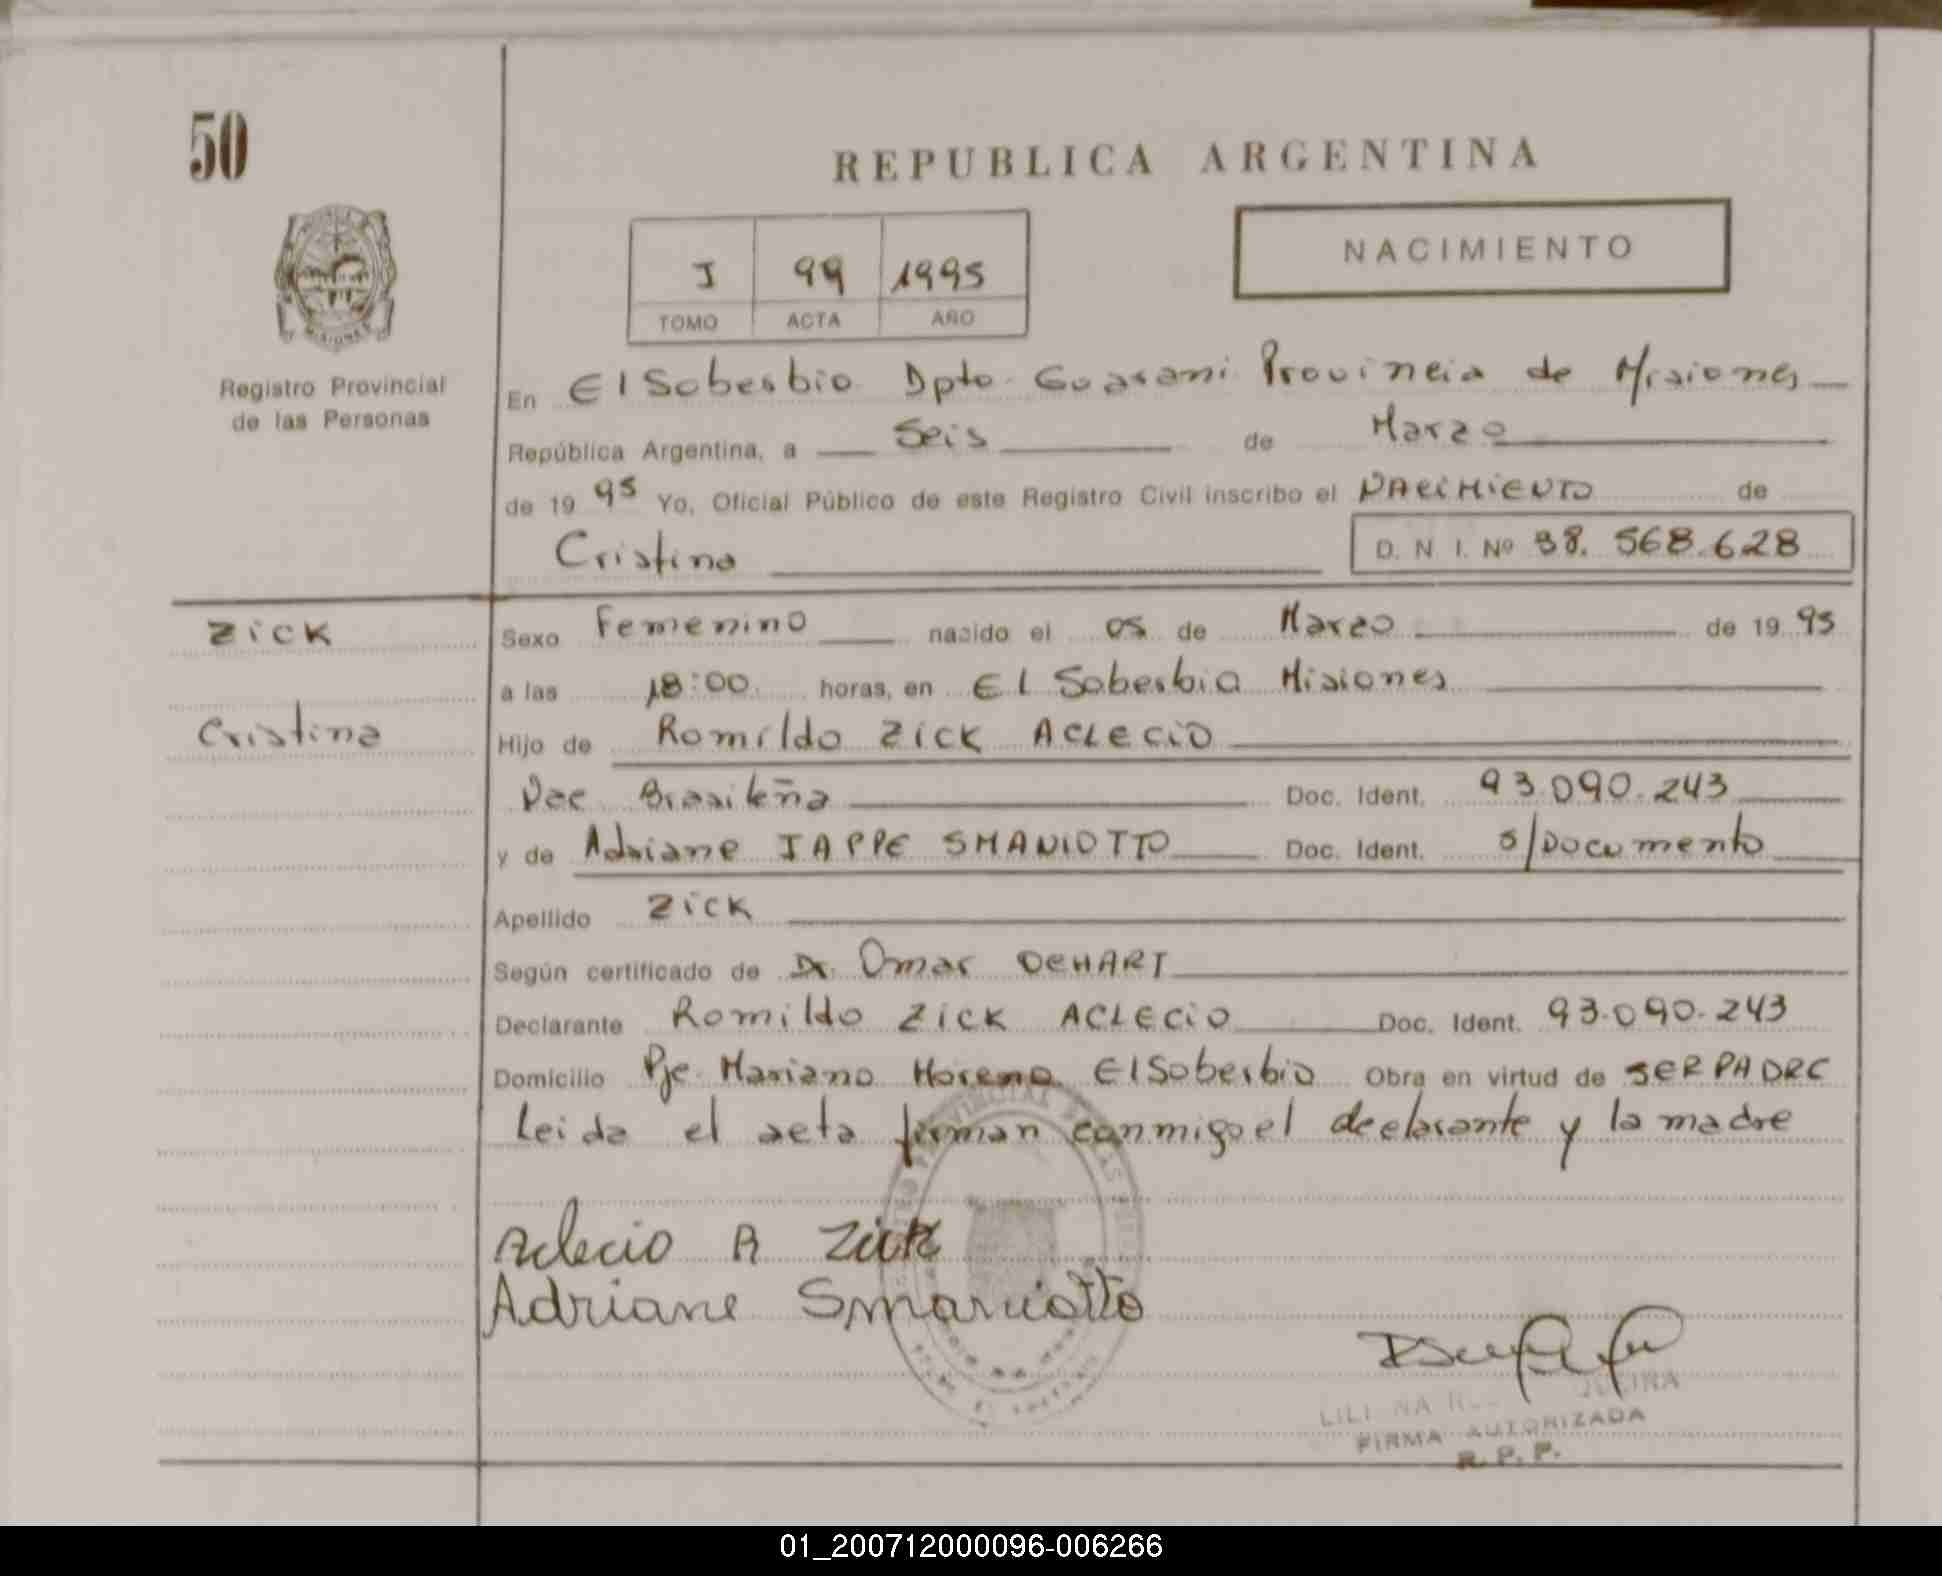 50
REPUBLICA ARGENTINA
NACIMIENTO
I 99 1995
TOMO ACTA AÑO
Registro Provincial
de las Personas
En El Soberbio Dpto. Guarani Provincia de Misiones
República Argentina, a Seis de Marzo
de 19 95 Yo, Oficial Público de este Registro Civil inscribo el NACIMIENTO de
Cristina D. N. I. Nº 38.568.628
ZICK
Cristina
Sexo Femenino nacido el 05 de Marzo de 19 95
a las 18:00 horas, en El Soberbio Misiones
Hijo de Romildo ZICK ACLECIO
Nac Brasileña Doc. Ident. 93.090.243
y de Adriane IAPPE SMANIOTTO Doc. Ident. s/Documento
Apellido ZICK
Según certificado de Dr. Omar DEHART
Declarante Romildo ZICK ACLECIO Doc. Ident. 93.090.243
Domicilio Pje. Mariano Moreno El Soberbio Obra en virtud de SER PADRE
Leida el acta firman conmigo el declarante y la madre
Aclecio A Zick
Adriane Smaniotto
FIRMA AUTORIZADA
R. P. P.
01_200712000096-006266